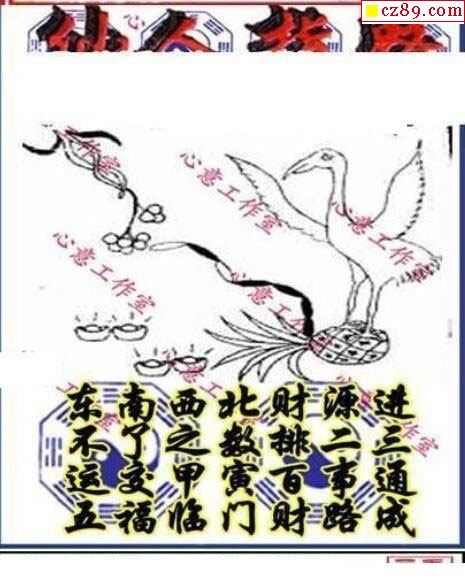 cz89.com
心意工作室
心意工作室
心意工作室
心意工作室
心意工作室
东南西北财源进
不了之数排二三
运交甲寅百事通
五福临门财路成